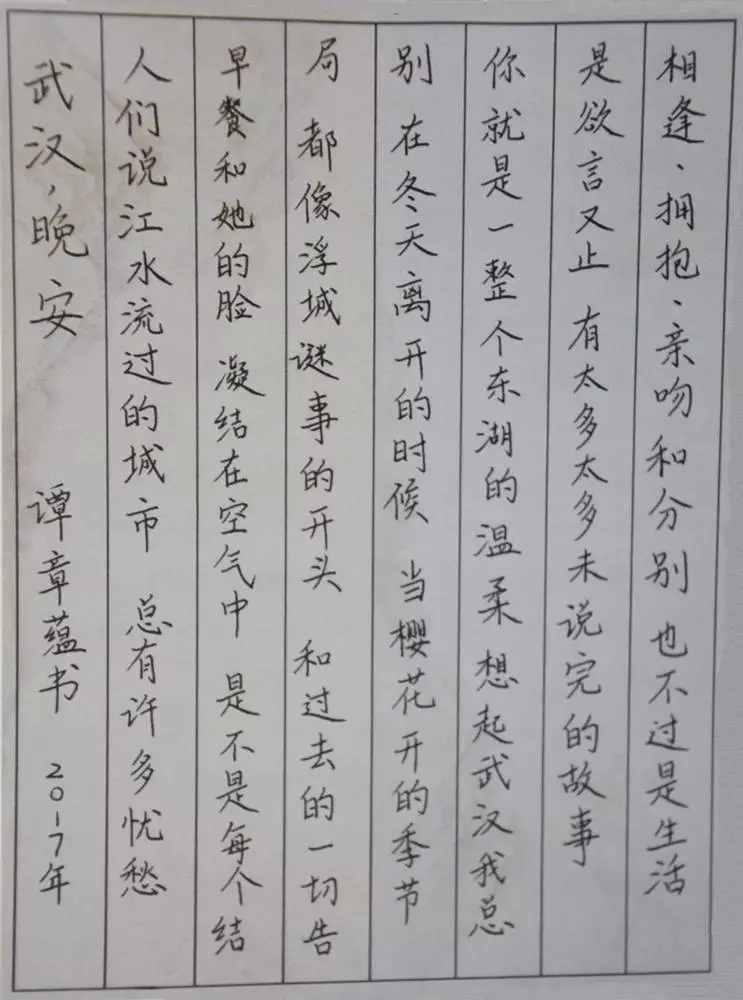 武汉，晚安 谭章蕴书 2017年
人们说江水流过的城市 总有许多忧愁
早餐和她的脸 凝结在空气中 是不是每个结
局 都像浮城谜事的开头 和过去的一切告
别 在冬天离开的时候 当樱花开的季节
你就是一整个东湖的温柔 想起武汉我总
是欲言又止 有太多太多未说完的故事
相逢、拥抱、亲吻和分别 也不过是生活